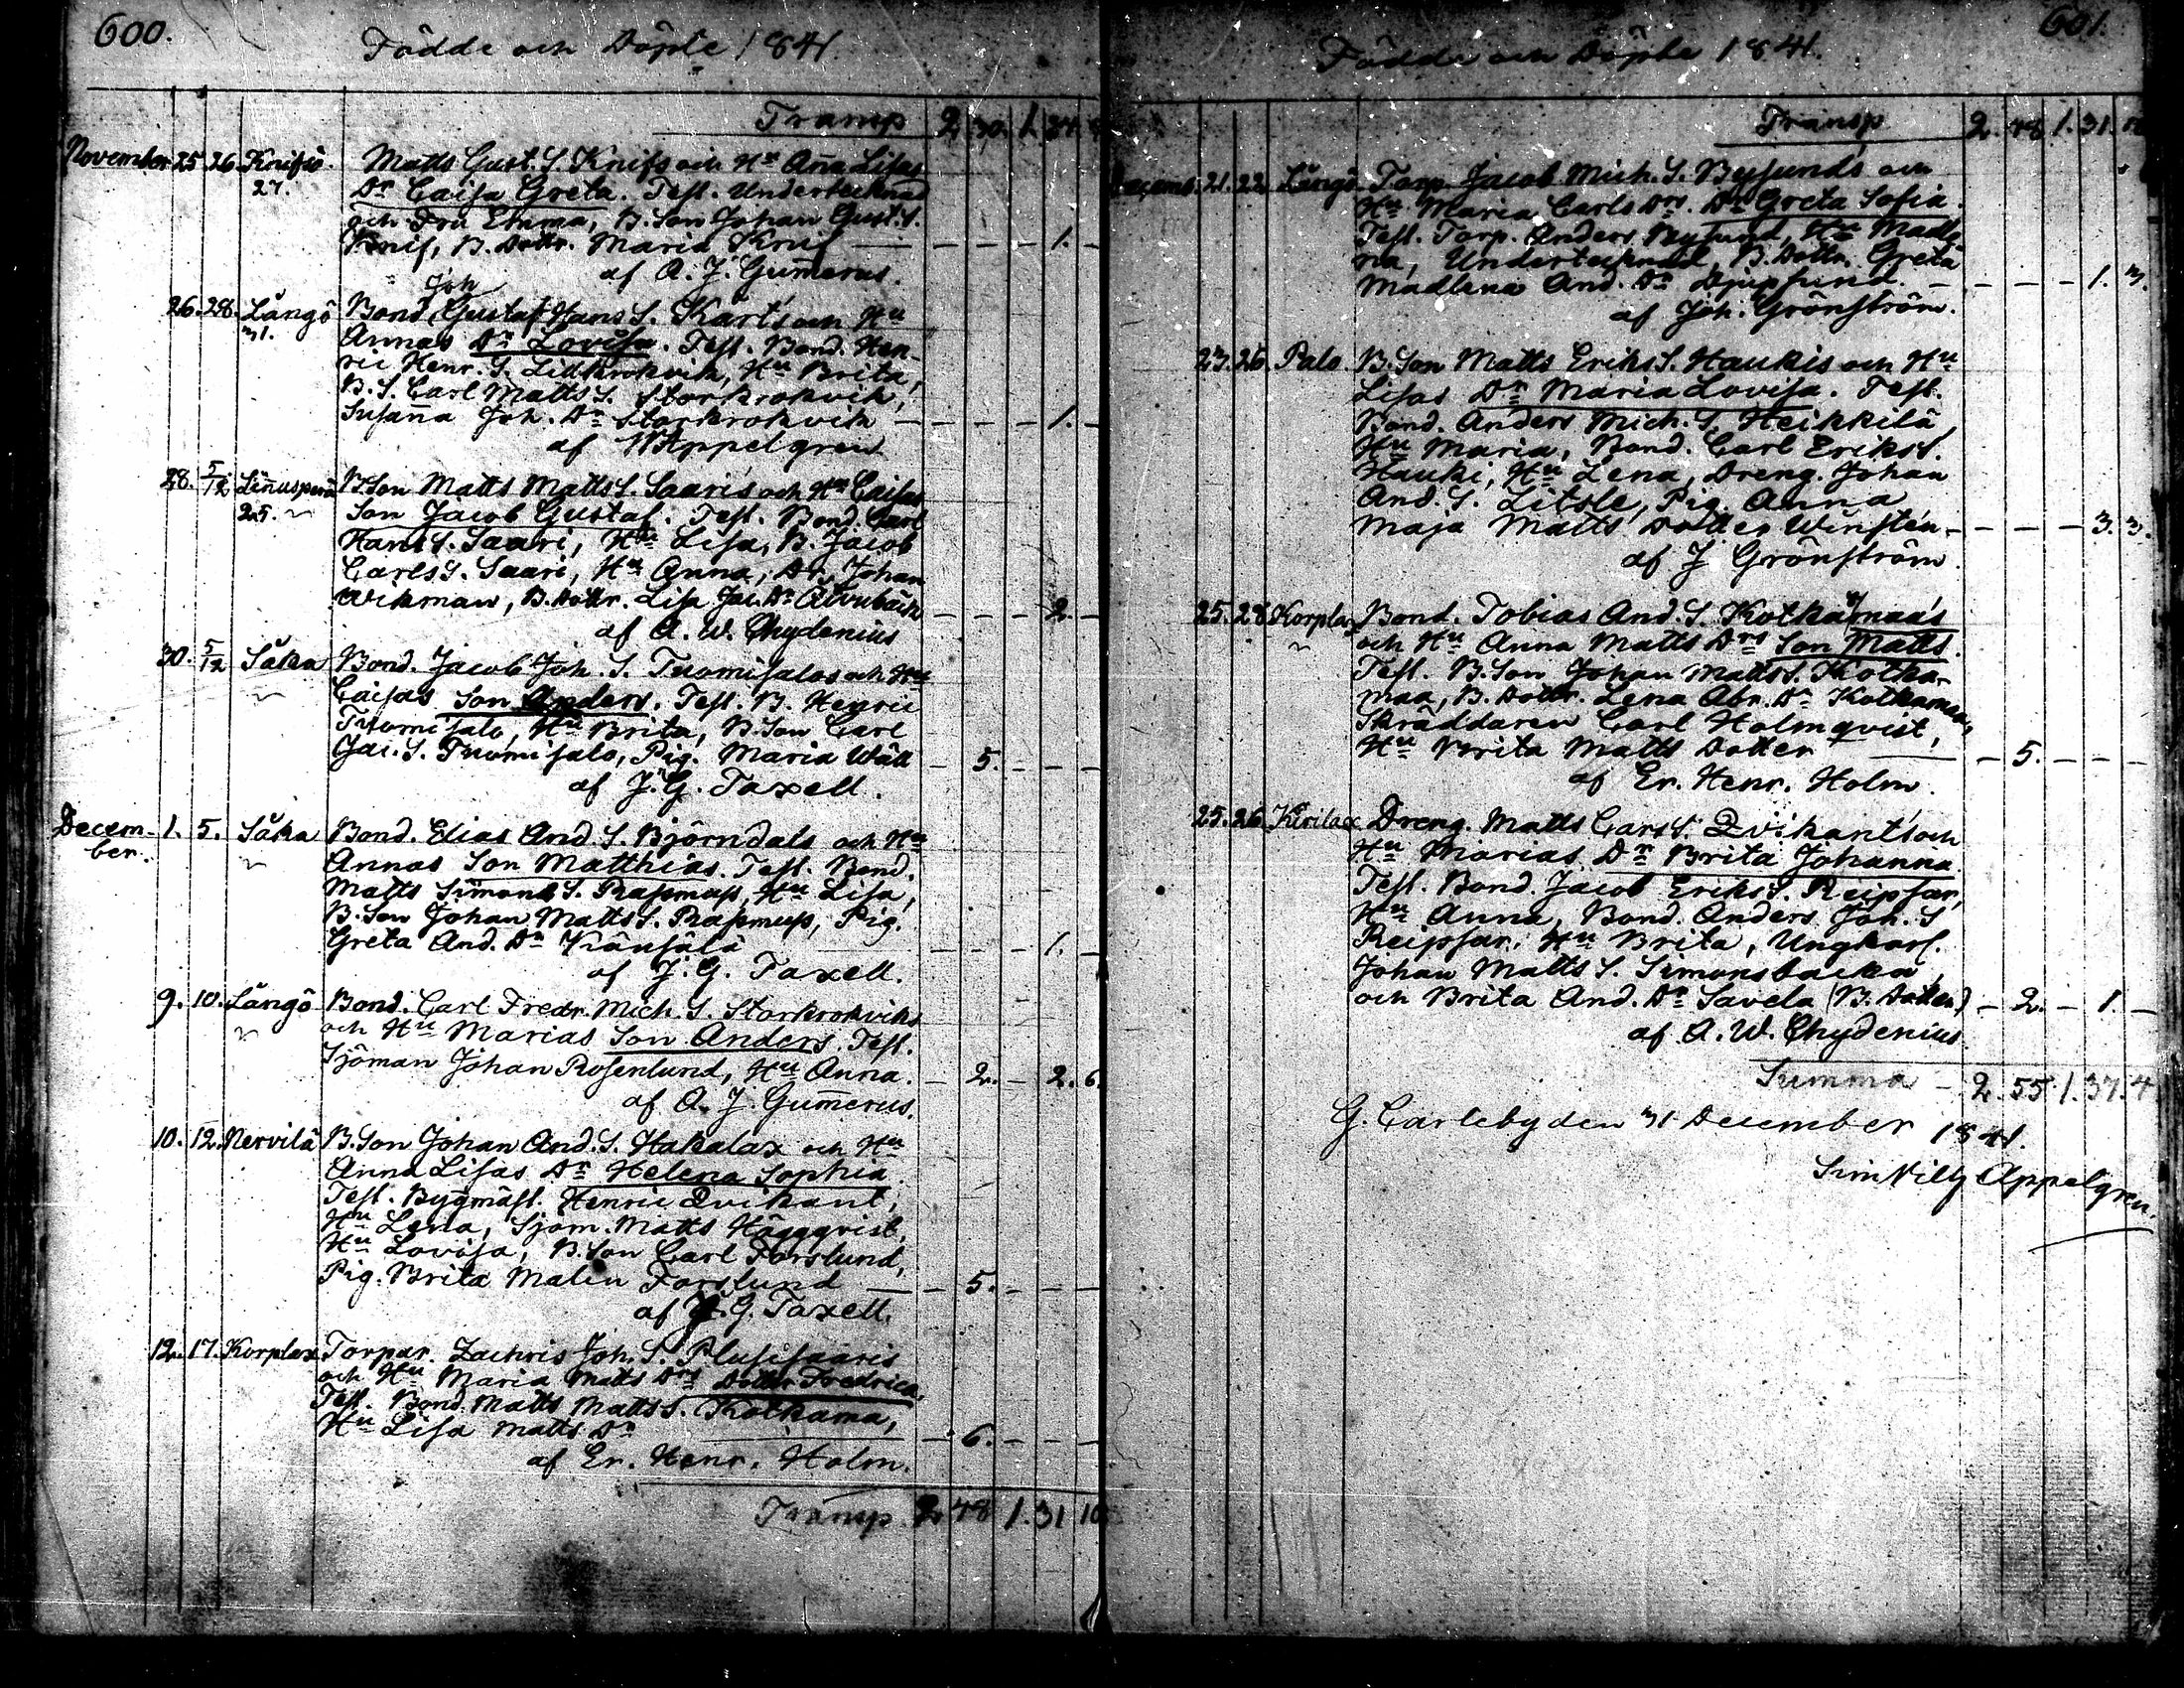 600.
Födde och Döpte 1841.
Transp 2. 30. 1.
November 25 26 Knifsö. Matts Gust. S. Knifs och Hu Anna Lisas
27. Dr Caisa Greta. Test. Undertecknad
och Fru Emma, B. Son Johan Gust. S.
Knif, B. Dottr. Maria Knif — — — — 1. —
af A. J. Gumerus.
Joh
26. 28. Långö Bond. Gustaf Hans S. Kärts och Hu
31. Annas Dr Lovisa. Test. Bond. Hen-
ric Henr. S. Lillkrokvik, Hu Brita,
B. S. Carl Matts S. Storkrokvik,
Susanna Joh. Dr Storkrokvik — — — — 1. —
af W Appelgren
28. 5/12 Linusperä B. Son Matts Matts S. Saaris och Hu Caisas
25. Son Jacob Gustaf. Test. Bond. Carl
Hans S. Saari, Hu Lisa, B. Jacob
Carls S. Saari, Hu Anna, Dr. Johan
Wikman, B. Dottr. Lisa Jac. Dr — — — 2. —
af A. W. Chydenius
30. 5/12 Såka Bond. Jacob Joh. S. Tuomisalos och Hu
Caisas Son Anders. Test. B. Henric
Tuomisalo, Hu Brita, B. Son Carl
Jac. S. Tuomisalo, Pig. Maria Wäll — 5. — — —
af J. G. Taxell.
Decem- 1. 5. Såka Bond. Elias And S. Björndals och Hu
ber. Annas Son Matthias. Test. Bond.
Matts Simons S. Rasmus, Hu Lisa,
B. Son Johan Matts S. Rasmus, Pig.
Greta And. Dr Känsälä — — — 1. —
af J. G. Taxell.
9. 10. Långö Bond. Carl Fredr. Mich. S. Storkrokviks
och Hu Marias Son Anders. Test.
Sjöman Johan Rosenlund, Hu Anna. — 2. — 2. 6.
af A. J. Gumerus.
10. 12. Nervilä B. Son Johan And. S. Hakalax och Hu
Anna Lisas Dr Helena Sophia.
Test. Bygmäst. Henric Qvikant,
Hu Lena, Sjöm. Matts Häggqvist,
Hu Lovisa, B. Son Carl Forslund,
Pig. Brita Malin Forslund — — 5. — — —
af J. G. Taxell.
12. 17. Korplax Torpar. Zachris Joh. S. Plusisaaris
och Hu Maria Matts Drs Dotter Fredrica.
Test. Bond. Matts Matts S. Kotkama,
Hu Lisa Matts Dr — 6. — — —
af Er. Henr. Holm.
Transp 2 48 1. 31 10
601.
Födde och Döpte 1841.
Transp 2. 48 1. 31. 10
Decemb. 21. 22 Långö Torp. Jacob Mich. S. Bysunds och
Hu Maria Carls Drs. Dr Greta Sofia.
Test. Torp. Anders Bysund, Hu Madle
na, Undertecknad, B. Dottr. Greta
Madlena And. Dr Djupsund. — — — — 1. 3.
af Joh. Grönström.
23. 26 Palo B. Son Matts Eriks S. Haukis och Hu
Lisas Dr Maria Lovisa. Test.
Bond. Anders Mich. S. Heikkilä,
Hu Maria, Bond. Carl Eriks S.
Hauki, Hu Lena, Dreng. Johan
And. S. Litsle, Pig. Anna
Maja Matts Dotter Winstén — — — — 3. 3.
af J Grönström
25. 28 Korplax Bond. Tobias And. S. Kotkamaas
och Hu Anna Matts Drs Son Matts.
Test. B. Son Johan Matts S. Kotka-
maa, B. Dottr. Lena Abr. Dr Kotkamaa,
Skräddaren Carl Holmqvist,
Hu Brita Matts Dotter — — 5. — — —
af Er. Henr. Holm.
25. 26. Kirilax Dreng. Matts Carl S. Qvikants och
Hu Marias Dr Brita Johanna
Test. Bond. Jacob Eriks S. Reipsar,
Hu Anna, Bond. Anders Joh. S
Reipsar, Hu Brita, Ungkarl.
Johan Matts S. Simonsbacka,
och Brita And. Dr Savela (B. Dotter) — 2. — 1. —
af A. W. Chydenius.
Summa — 2. 55 1. 37. 4
G. Carleby den 31 December 1841.
Sim Vilh Appelgren.